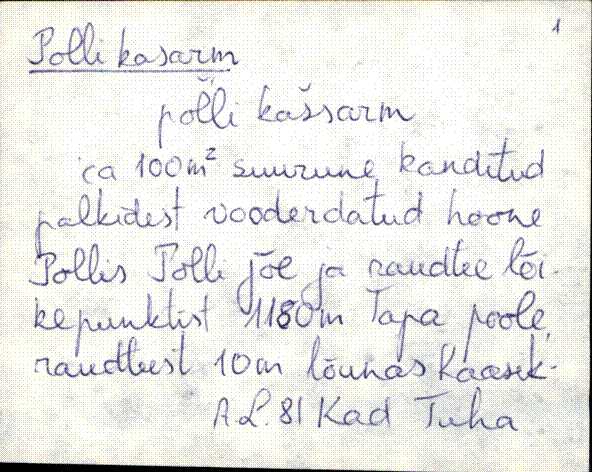 1
Polli kasarm
põlli kašsarm
ca 100m² suurune kanditud
palkidest vooderdatud hoone
Pollis Polli jõe ja raudtee lõi-
kepunktist 1180m Tapa poole,
raudteest 10m lõunas Kaasik-
A.L. 81 Kad Tuha